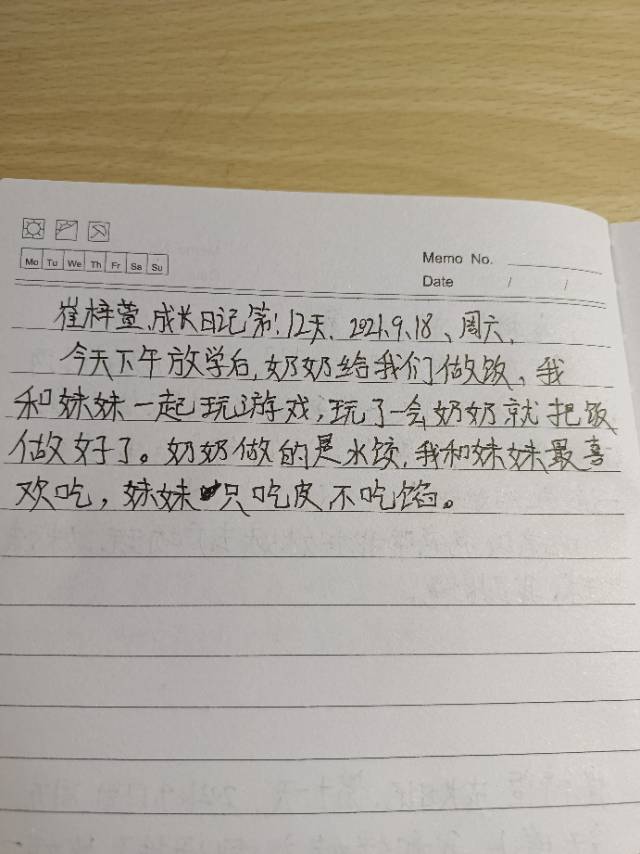 Mo Tu We Th Fr Sa Su
Memo No.
Date / /
崔梓萱、成长日记第:12天、2021.9.18、周六、
今天下午放学后,奶奶给我们做饭、我
和妹妹一起玩游戏,玩了一会奶奶就把饭
做好了。奶奶做的是水饺,我和妹妹最喜
欢吃,妹妹只吃皮不吃馅。